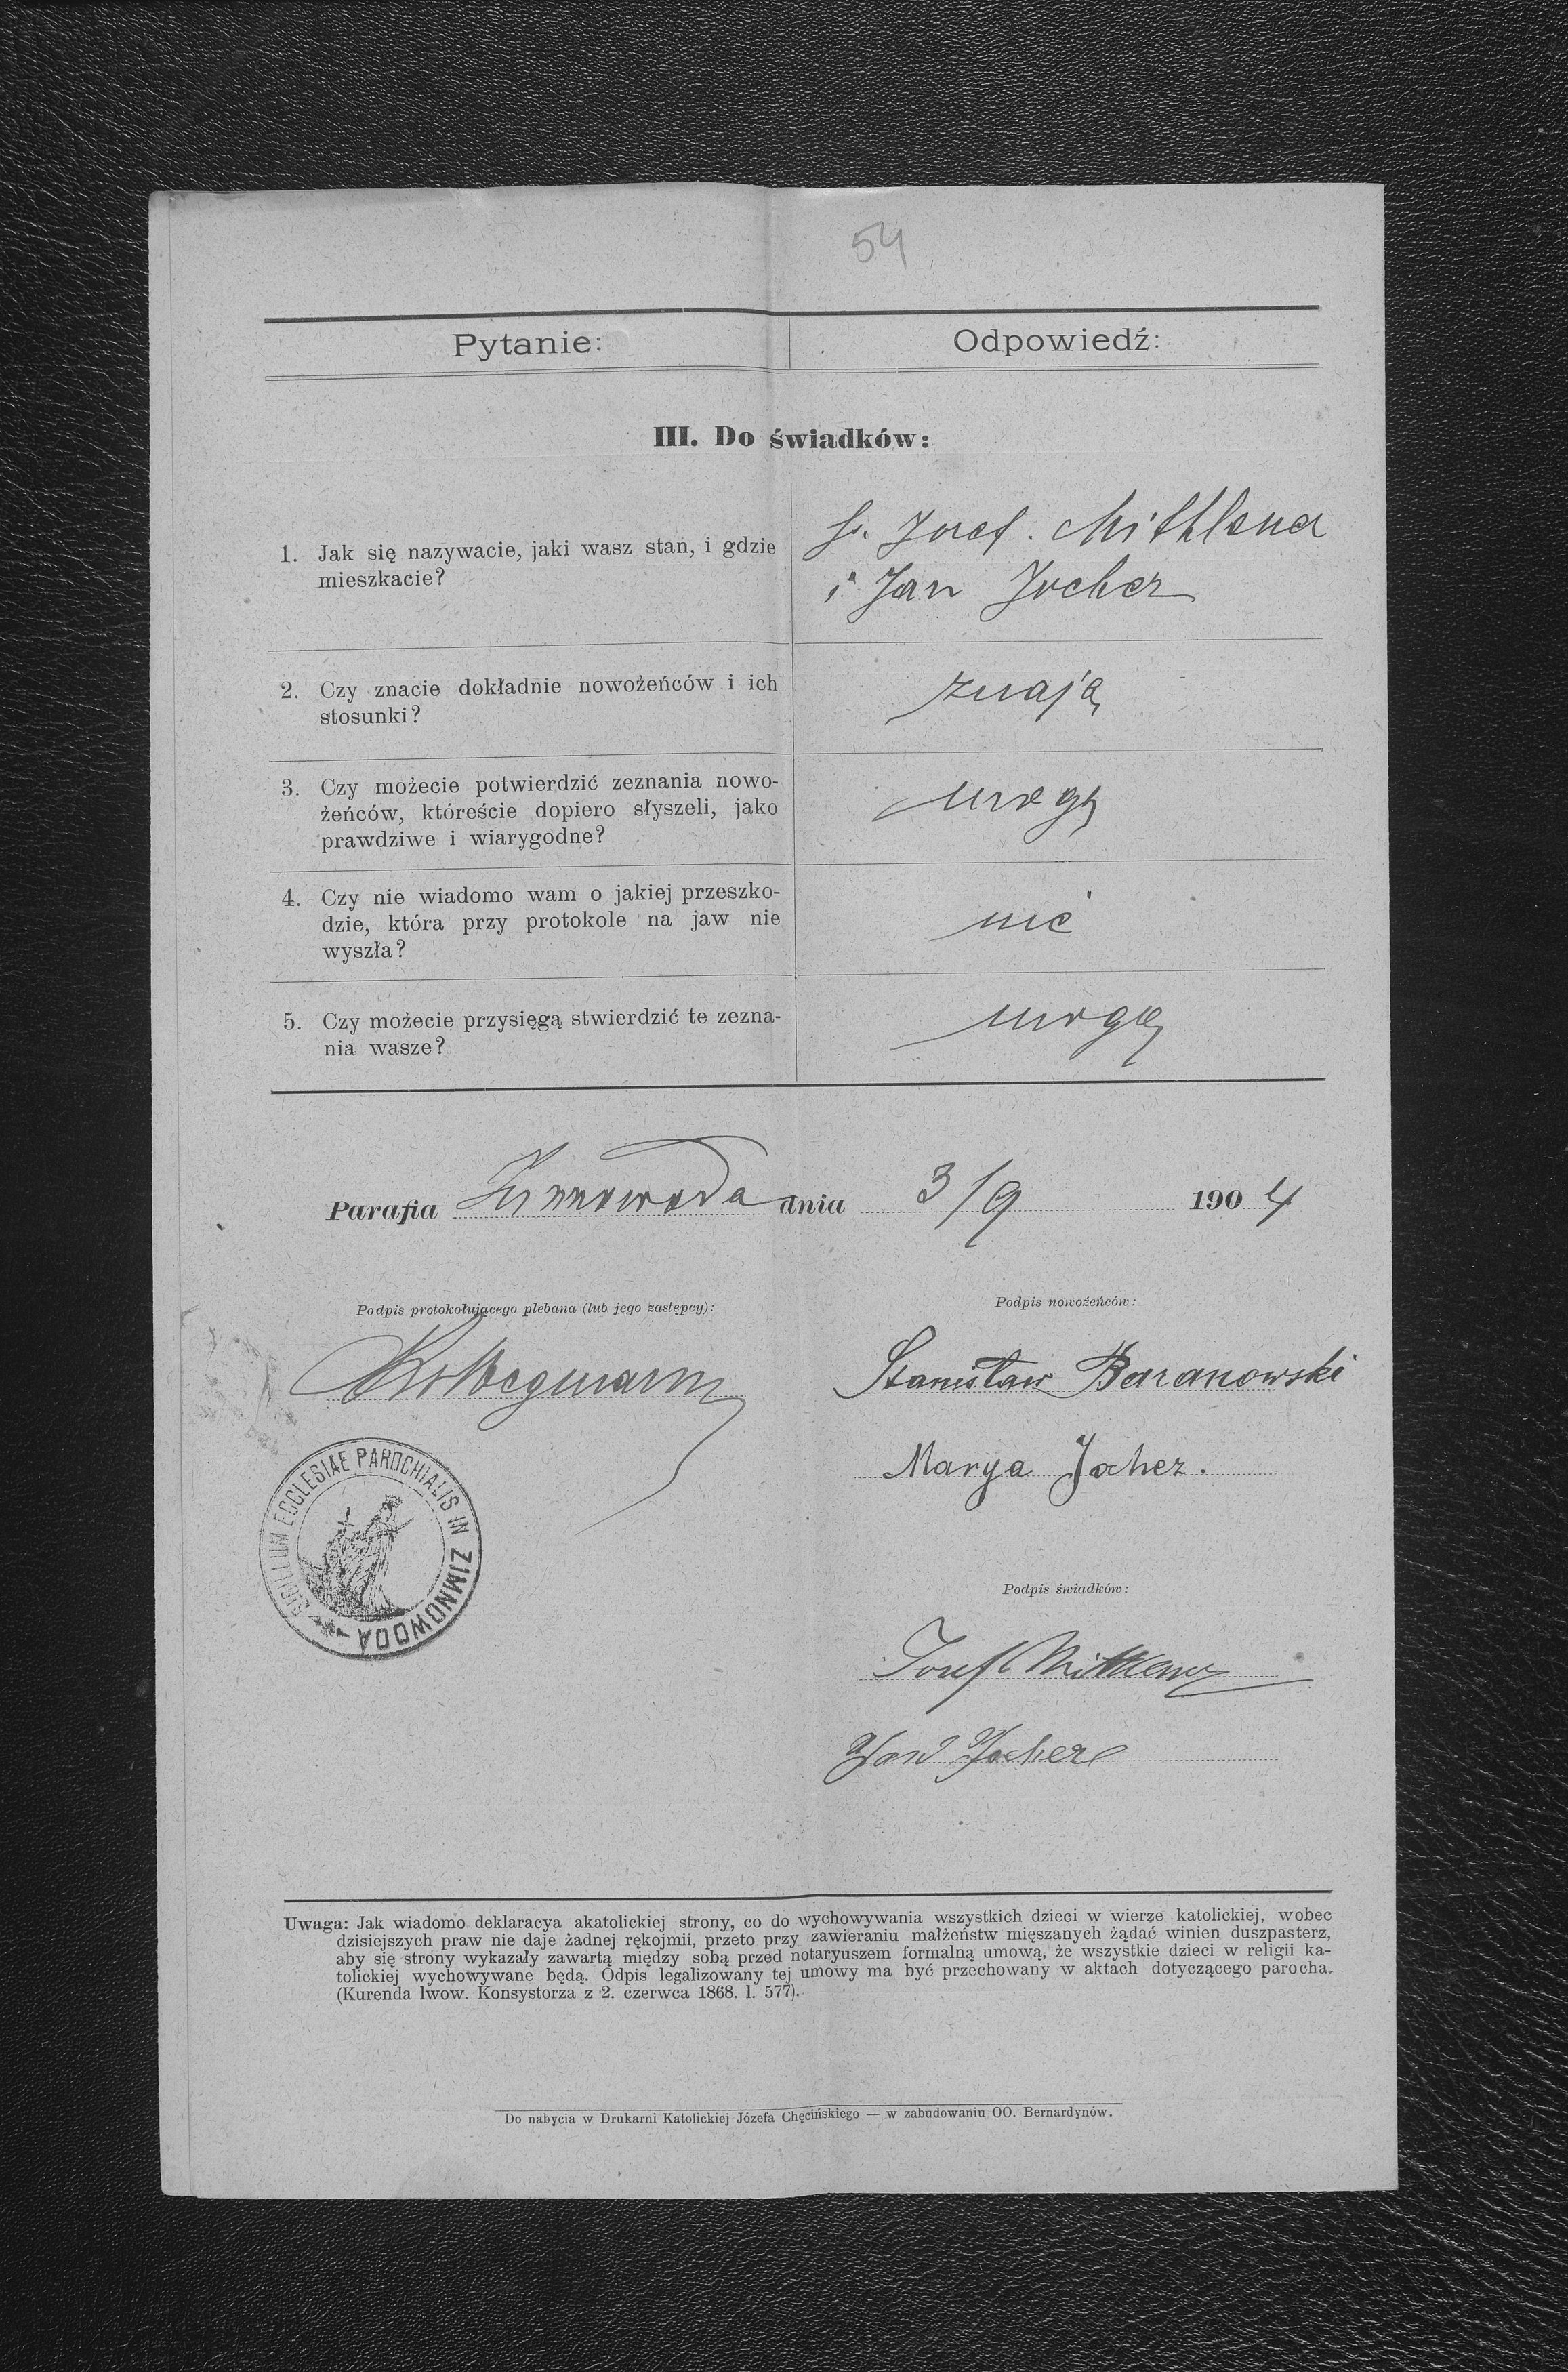 54
Pytanie: Odpowiedź:
III. Do świadków:
1. Jak się nazywacie, jaki wasz stan, i gdzie
mieszkacie?
Józef
i Jan Jocher
2. Czy znacie dokładnie nowożeńców i ich
stosunki?
znają
3. Czy możecie potwierdzić zeznania nowo-
żeńców, któreście dopiero słyszeli, jako
prawdziwe i wiarygodne?
mogą
4. Czy nie wiadomo wam o jakiej przeszko-
dzie, która przy protokole na jaw nie
wyszła?
nie
5. Czy możecie przysięgą stwierdzić te zezna-
nia wasze?
mogą
Parafia Zimnowoda dnia 3/9 1904
Podpis protokołującego plebana (lub jego zastępcy):
Podpis nowożeńców:
Stanisław Baranowski
Marya Jocher.
SIGILLUM ECCLESIAE PAROCHIALIS IN ZIMNOWODA
Podpis świadków:
Józef
Jan Jocher
Uwaga: Jak wiadomo deklaracya akatolickiej strony, co do wychowywania wszystkich dzieci w wierze katolickiej, wobec
dzisiejszych praw nie daje żadnej rękojmii, przeto przy zawieraniu małżeństw mięszanych żądać winien duszpasterz,
aby się strony wykazały zawartą między sobą przed notaryuszem formalną umową, że wszystkie dzieci w religii ka-
tolickiej wychowywane będą. Odpis legalizowany tej umowy ma być przechowany w aktach dotyczącego parocha.
(Kurenda lwow. Konsystorza z 2. czerwca 1868. l. 577).
Do nabycia w Drukarni Katolickiej Józefa Chęcińskiego — w zabudowaniu OO. Bernardynów.